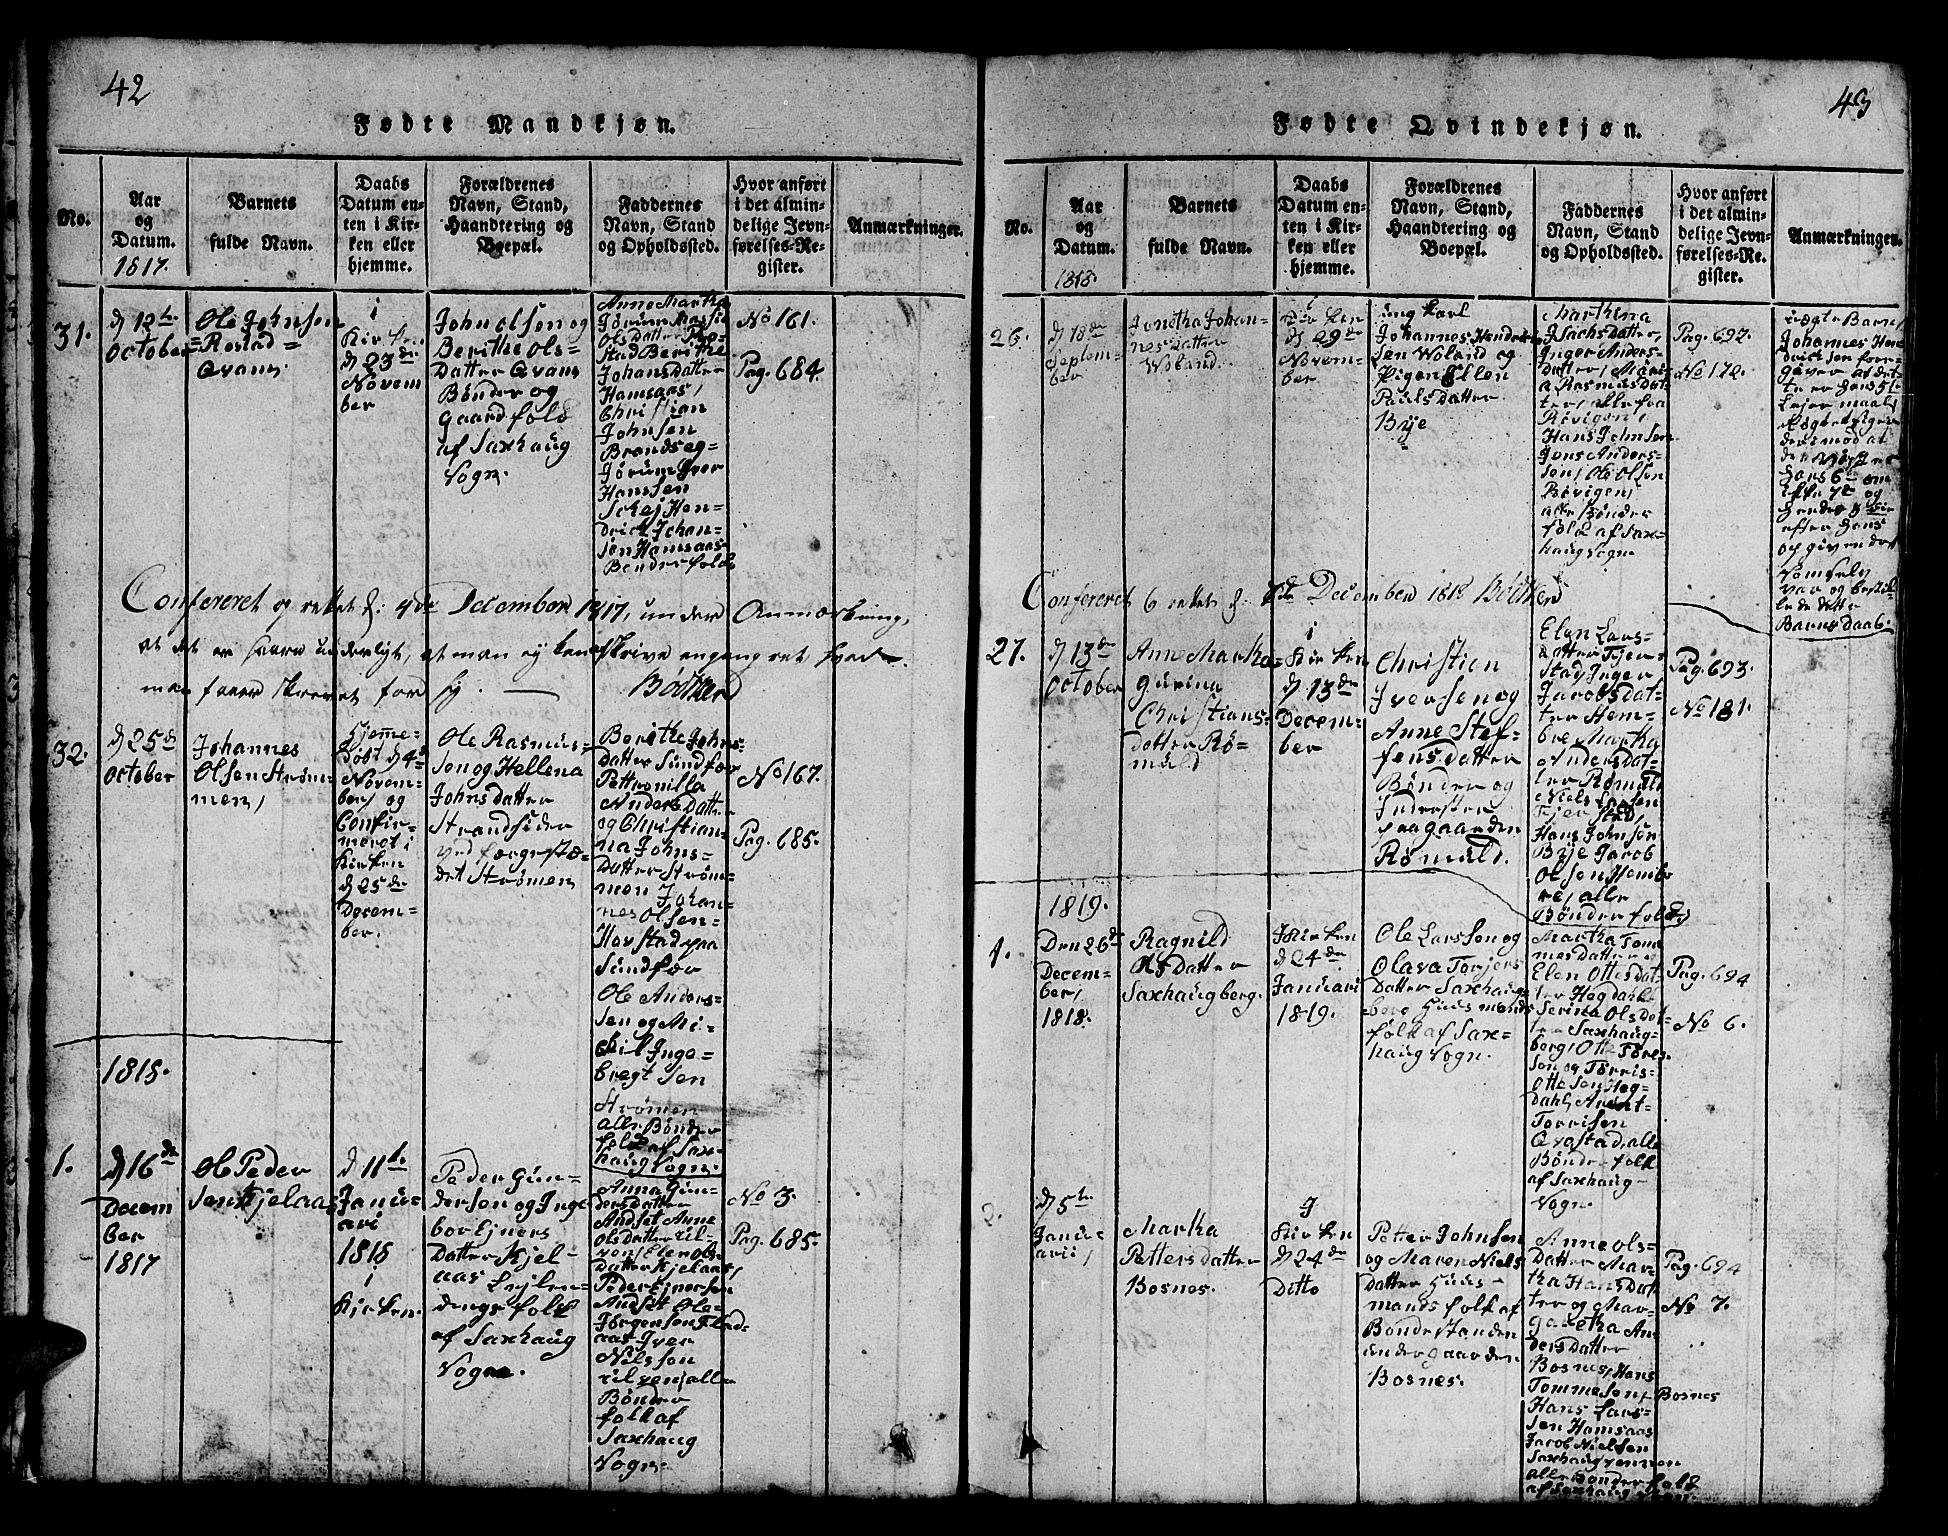 42
Fødte Mandkjøn.
No.
Aar
og
Datum.
1817.
Barnets
fulde Navn.
Daabs
Datum en-
ten i Kir-
ken eller
hjemme.
Forældrenes
Navn, Stand,
Haandtering og
Boepæl.
Faddernes
Navn, Stand
og Opholdssted.
Hvor anført
i det almin-
delige Jevn-
førelses-Re-
gister.
Anmærkninger.
31.
d 12te
October
Ole Johnsen
Rostad=
Qvam
i
Kirken
d 23de
Novem
ber
John Olsen og
Berithe Ols=
Datter Qvam
Bønder og
Gaardfolk
af Saxhaug
Sogn.
Anne Martha
Jørum
OlsDatter Ro=
stad Berithe
JohansDatter
Hamsaas,
Christian
Johnsen
Brandseg=
Jørum Iver
Hanssen
Schej Hen=
drick Johan=
sen Hamsaas=
Bønderfolk
No 161.
Pag. 684.
Confereret og rettet d: 4de December 1817, under Anmærkning,
at det er saare underligt, at man ej kan skrive engang ret hvad
man faaer skrevet for sig. — Bödtker
32.
d 25de
October
Johannes
Olsen Strøm=
men,
Hjemme=
døbt d 4de
Novem=
ber, og
Confir=
meret i
Kirken
d 25de
Decem=
ber.
Ole Rasmus=
sen og Hellena
JohnsDatter
Strandsider
ved færgestæ=
det Strømen
Berithe Johns=
Datter Sundfær
Petronilla
AndersDatter
og Christian=
na Johns=
Datter Strøm=
men Johan=
nes Olsen=
Hovstad paa
Sundfær
Ole Anders=
sen og Mi=
chil Inge=
bregt sen
Strømen
alle Bønder
folk af Sax=
haug Sogn.
No 167.
Pag. 685.
1818.
1.
d 16de
Decem
ber
1817
Ole Peder
sen Kjelaas
d 11te
Janu=
ari
1818
i
Kirken.
Peder Gun=
dersen og Inge
bor Ejners
Datter Kjel=
aas Lejlen=
dings folk
af Saxhaug
Sogn.
Anna Gun=
dersDatter
Andset Anne
OlsDatter
Elen Ols=
Datter Kjelaas,
Peder Ejnersen
Andset Ole=
Jørgensen
Iver
Nilssen
alle
Bønder
folk af
Saxhaug
Sogn.
No 3.
Pag. 685.
43
Fødte Qvindekjøn.
No.
Aar
og
Datum.
1818.
Barnets
fulde Navn.
Daabs
Datum en-
ten i Kir-
ken eller
hjemme.
Forældrenes
Navn, Stand,
Haandtering og
Boepæl.
Faddernes
Navn, Stand
og Opholdssted.
Hvor anført
i det almin-
delige Jevn-
førelses-Re-
gister.
Anmærkninger.
26.
d 18de
Septem=
ber
Jonetha Johan=
nes Datter
Woland.
i
Kirken
d 29de
Novem=
ber
ung karl
Johannes Hendrik
sen Woland og
Pigen Ellen
PaulsDatter
Bye
Marthina
IsachsDatter,
Inger Anders=
Datter, Mari=
a RasmusDat=
ter, alle fra
Røvigen,
Hans Johnsen
Jens Anders=
sen, Ole Olsen
Røvigen,
alle Bønder
folk af Sax=
haug Sogn
Pag. 692.
No 172.
uægte Barn,
Johannes Hen
dricksen for=
giver at det=
te er hans 5te
Leiermaal,
og given det
Barns Daab.
Conferet & rettet d: 7de December 1818 Bödtker
27.
d 13de
October
Anne Martha
Gurina
Christians=
datter Rø=
muld
i
Kirken
d 13de
Decem=
ber
Christien
Iversen og
Anne Stef=
fensdatter
Bønder og
Inderster
paa gaarden
Rømuld.
Elen Lars=
datter Tjer=
stad Inger
Jacobsdat=
ter Hem=
bre Martha
Andersdat=
ter Rømuld
Niels Larsen
Tjerstad,
Hans Johnsen
Bye Jacob
Olsen Hemb
re, alle
Bønderfolk
Pag. 693.
No 181.
1819.
1.
Den 26de
Decem=
ber,
1818.
Ragnild
OlsDatter
Saxhaugberg.
I Kirken
d 24de
Januari
1819.
Ole Larssen og
Olava Torjers
Datter Saxhaug
berg Huusmands
folk af Sax=
haug Sogn.
Martha Tom
mesDatter og
Elen OttesDat
ter Hegdahl
Serina OlsDat=
ter Saxhaug=
berg, Otte Tøres
sen og Torris=
Ottesen Heg=
dahl, Anders
Torrisen
Qvastad, alle
Bønderfolk
af Saxhaug=
Sogn.
Pag. 694
No 6.
2.
d 5te
Janu=
arii,
Martha
PettersDatter
Bosnes.
I
Kirken
d 24de
Ditto
Petter Johnsen
og Maren Niels
Datter Huus=
mands folk af
Bondestanden
under gaarden
Bosnes.
Anne Ols=
Datter Mar=
tha HansDat
ter og Mar=
garetha An
dersDatter
Bosnes, Hans
Tommesen, Bosnes
Hans Lars=
sen Hamsaas
Jacob Nielsen
Saxhaug
alle Bønderfolk
af Saxhaug Sogn.
Pag. 694
No 7.